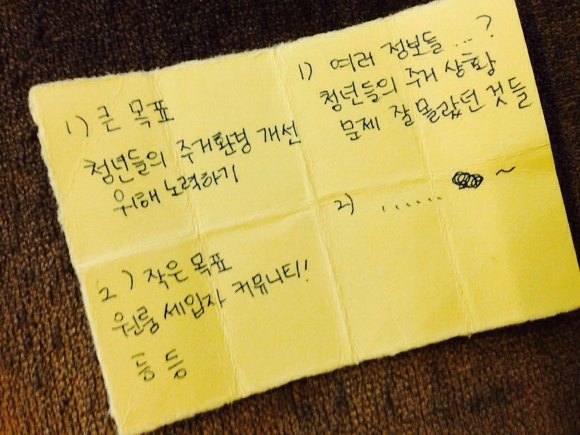 1) 큰 목표
청년들의 주거환경 개선
위해 노력하기
2) 작은 목표
원룸 세입자 커뮤니티!
등 등
1) 여러 정보들 ...?
청년들의 주거 상황
문제 잘 몰랐던 것들
2) ...... ~